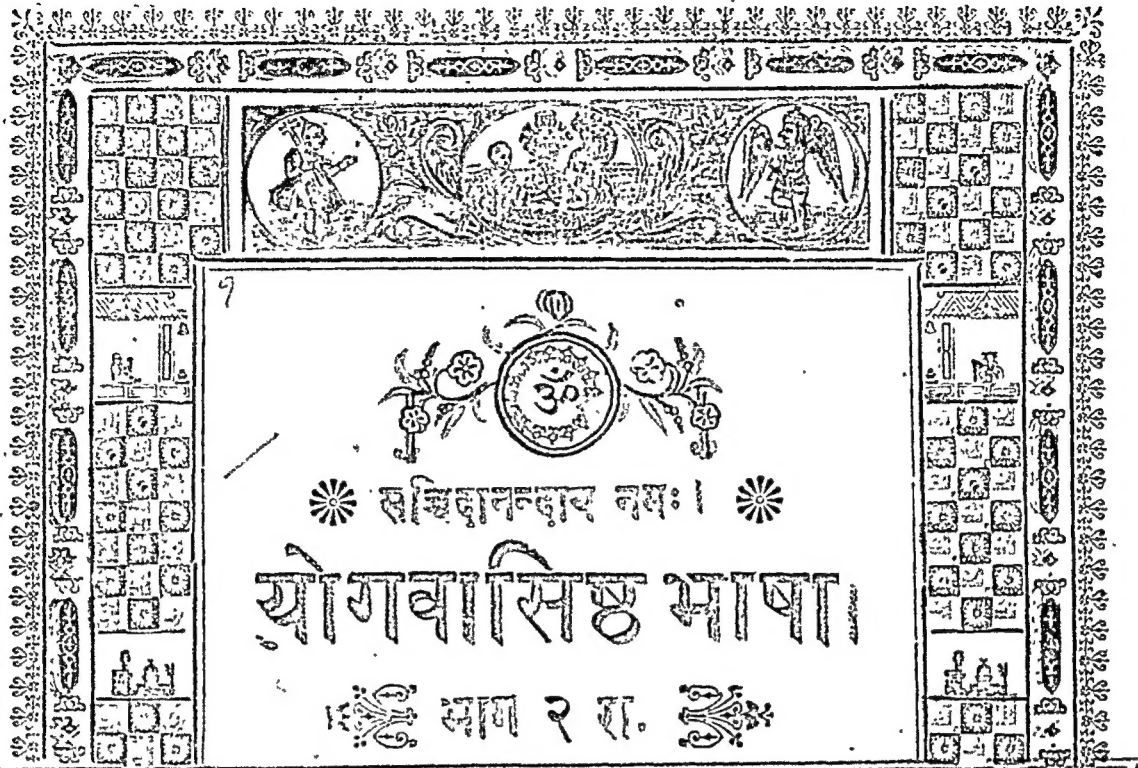 १
ॐ
सच्चिदानन्दाय नमः।
योगवासिष्ठ भाषा।
भाग २ रा.